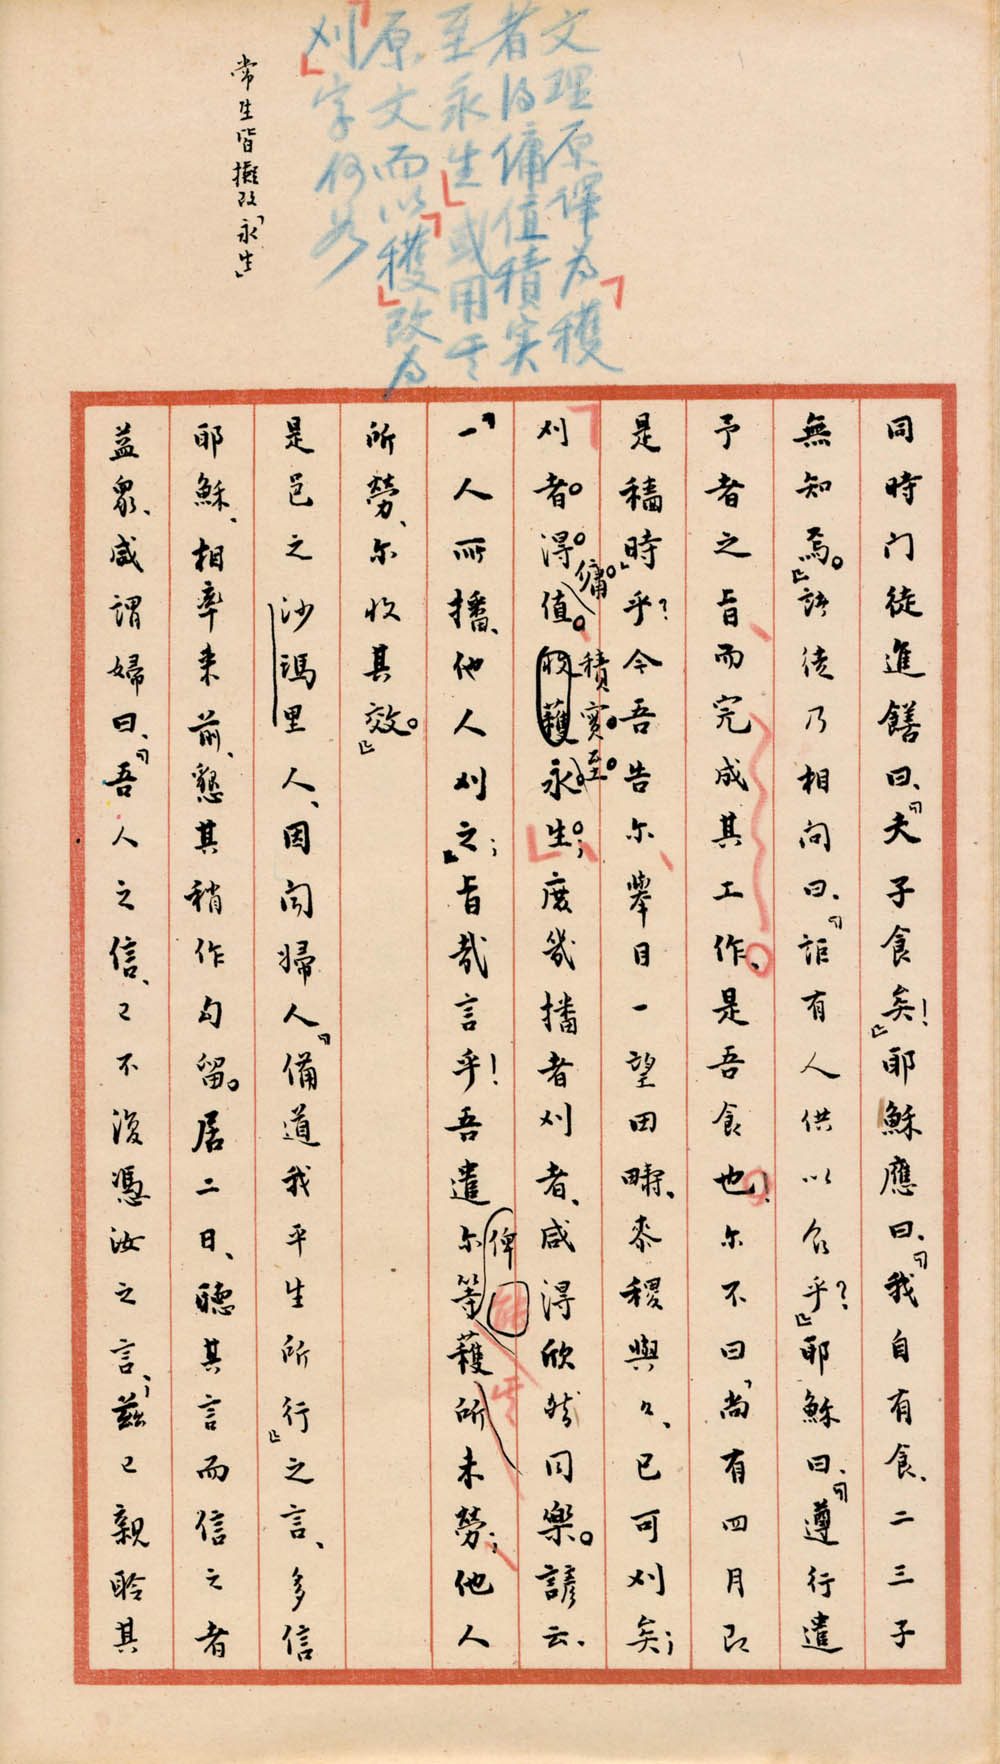 文理原译为「穫
者得傭值積实
至永生」或用其
原文而以「穫」改为
「刈」字何如
常生皆擬改「永生」
同時门徒進饍曰、『夫子食矣！』耶穌應曰、『我自有食、二三子
無知焉。』諸徒乃相向曰、『詎有人供以食乎？』耶穌曰、『遵行遣
予者之旨、而完成其工作、是吾食也！尔不曰「尚有四月即
是穡時」乎？今吾告尔、舉目一望田疇、黍稷與與、已可刈矣；
刈者得傭值積實至永生；庶幾播者刈者、咸得欣然同樂。諺云、
「一人所播、他人刈之；」旨哉言乎！吾遣尔等俾穫所未勞；他人
所勞、尔收其效。』
是邑之沙瑪里人、因闻婦人『備道我平生所行』之言、多信
耶穌、相率來前、懇其稍作勾留。居二日、聽其言而信之者
益眾、咸謂婦曰、『吾人之信、已不復憑汝之言、茲已親聆其